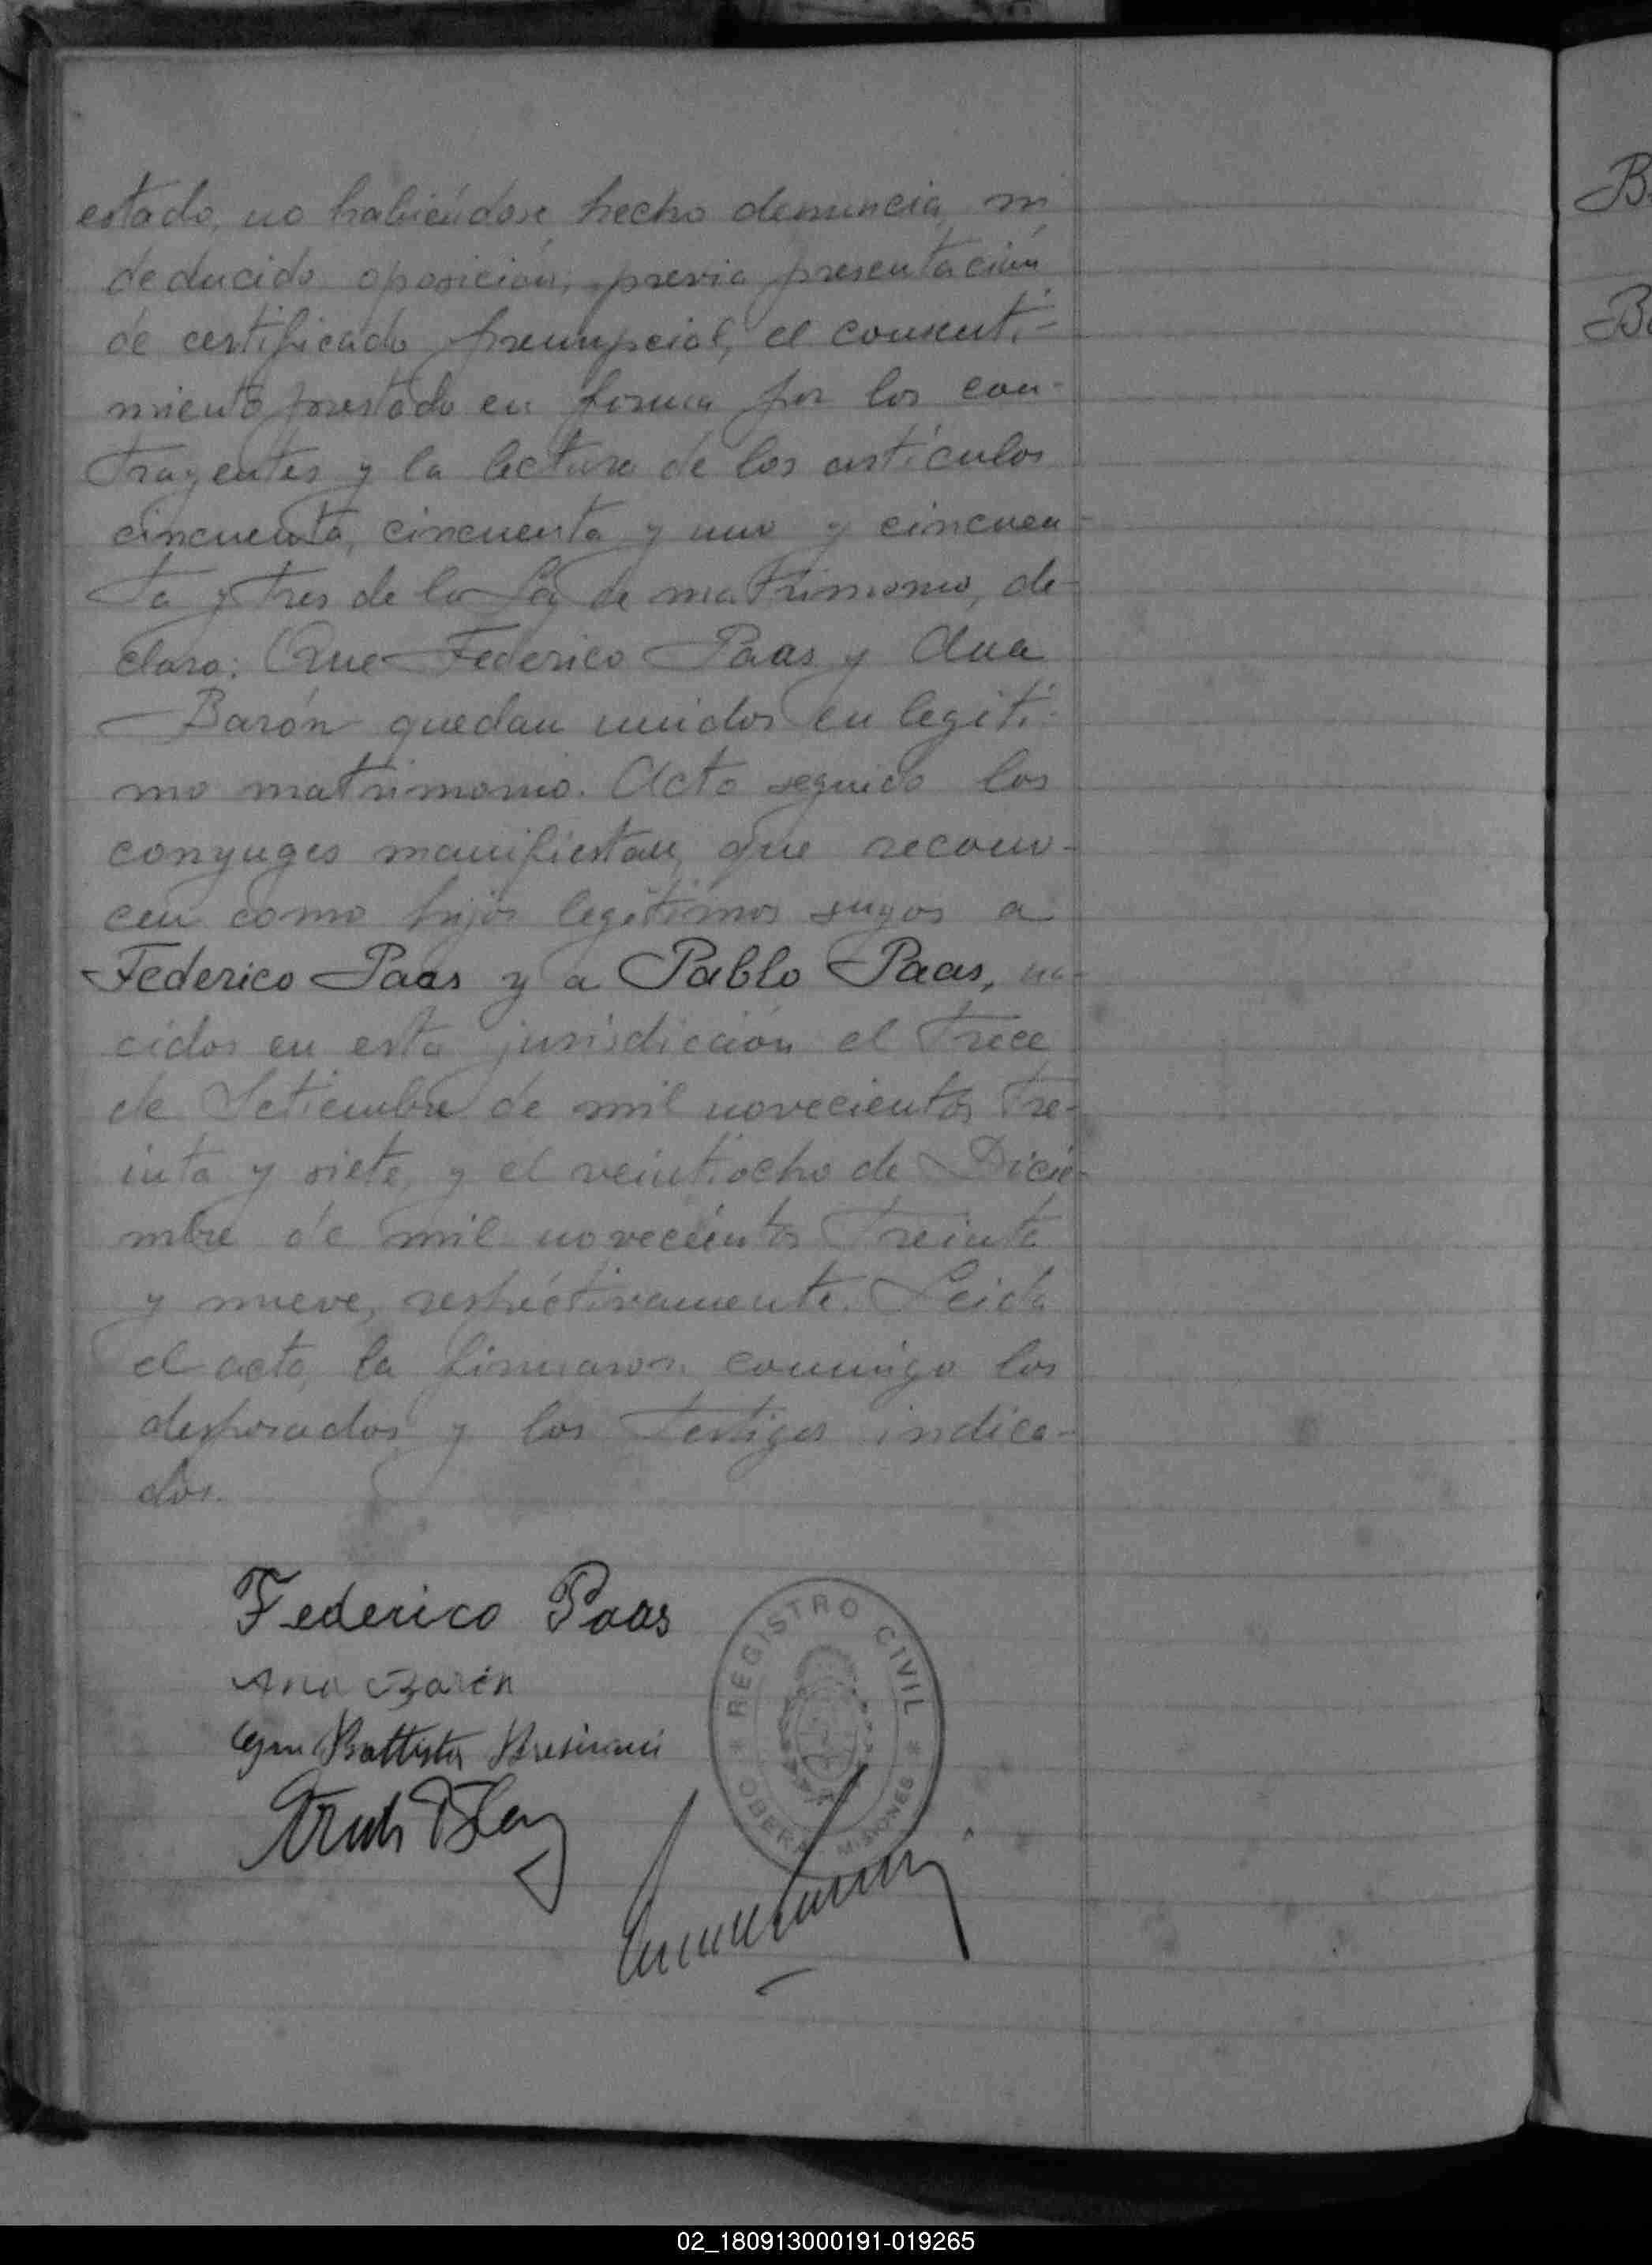 estado, no habiéndose hecho denuncia, ni
deducido oposición, previa presentación
de certificado prenupcial, el consenti-
miento prestado en forma por los con-
trayentes y la lectura de los artículos
cincuenta, cincuenta y uno y cincuen-
ta y tres de la Ley de matrimonio, de-
claro: Que Federico Paas y Ana
Barón quedan unidos en legíti-
mo matrimonio. Acto seguido los
conyuges manifiestan, que recono-
cen como hijos legítimos suyos a
Federico Paas y a Pablo Paas, na-
cidos en esta jurisdicción el trece
de Setiembre de mil novecientos tre-
inta y siete, y el veintiocho de Dicie-
mbre de mil novecientos treinta
y nueve, respectivamente. Leida
el acta, la firmaron conmigo los
desposados y los testigos indica-
dos.
Federico Paas
Ana Barón
Battista
REGISTRO CIVIL
OBERA MISIONES
02_180913000191-019265